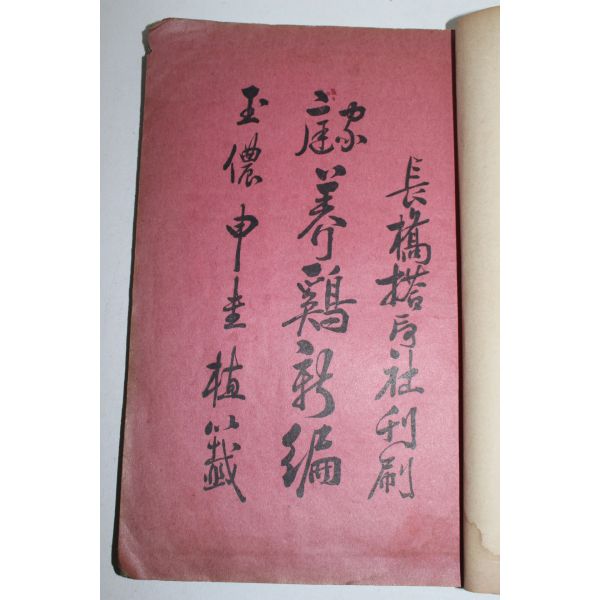 長橋搭印社刊刷
家庭養鷄新編
玉儂申圭植籤